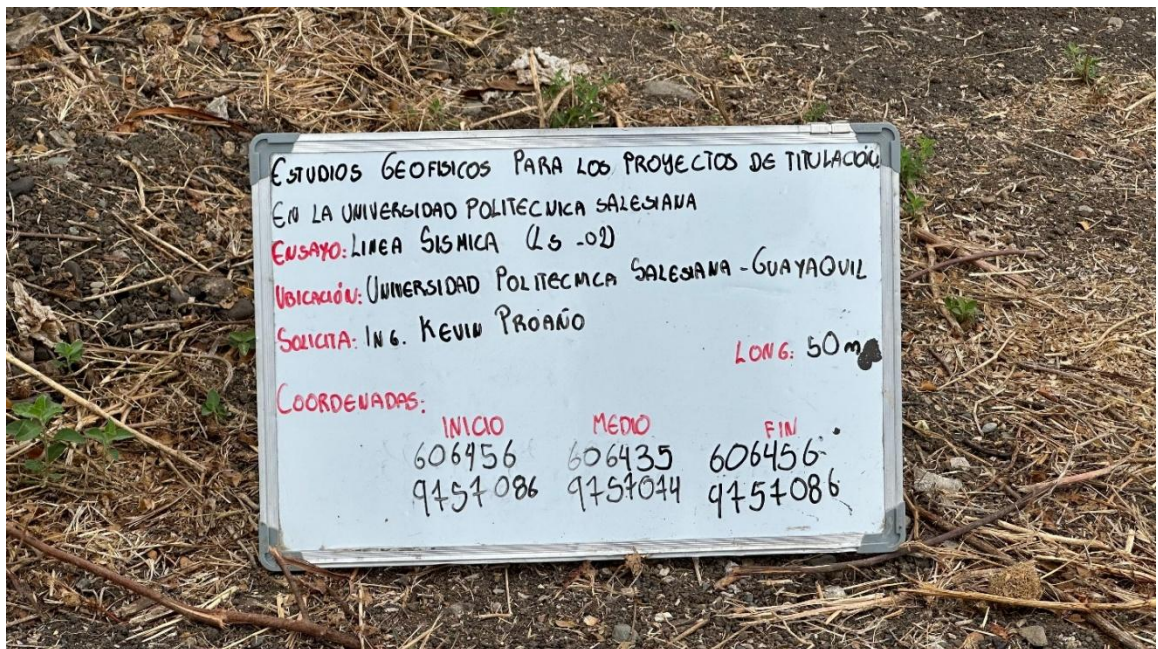 ESTUDIOS GEOFISICOS PARA LOS PROYECTOS DE TITULACIÓN
EN LA UNIVERSIDAD POLITECNICA SALESIANA
ENSAYO: LINEA SISMICA (LS -02)
UBICACIÓN: UNIVERSIDAD POLITECNICA SALESIANA - GUAYAQUIL
SOLICITA: ING. KEVIN PROAÑO
LONG: 50m
COORDENADAS:
INICIO MEDIO FIN
606456 606435 606456
9757086 9757074 9757086